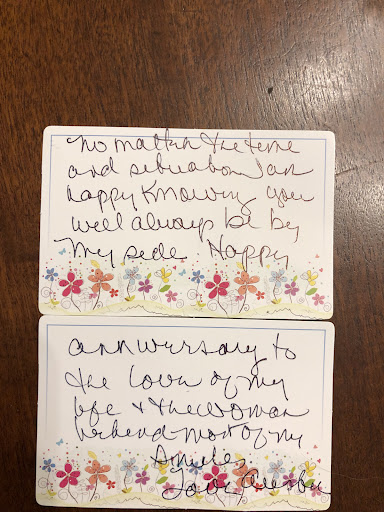 no matter the time
and situation I am
happy knowing you
will always be by
my side Happy
anniversary to
the love of my
life & the woman
behind most of my
smiles.
Love,